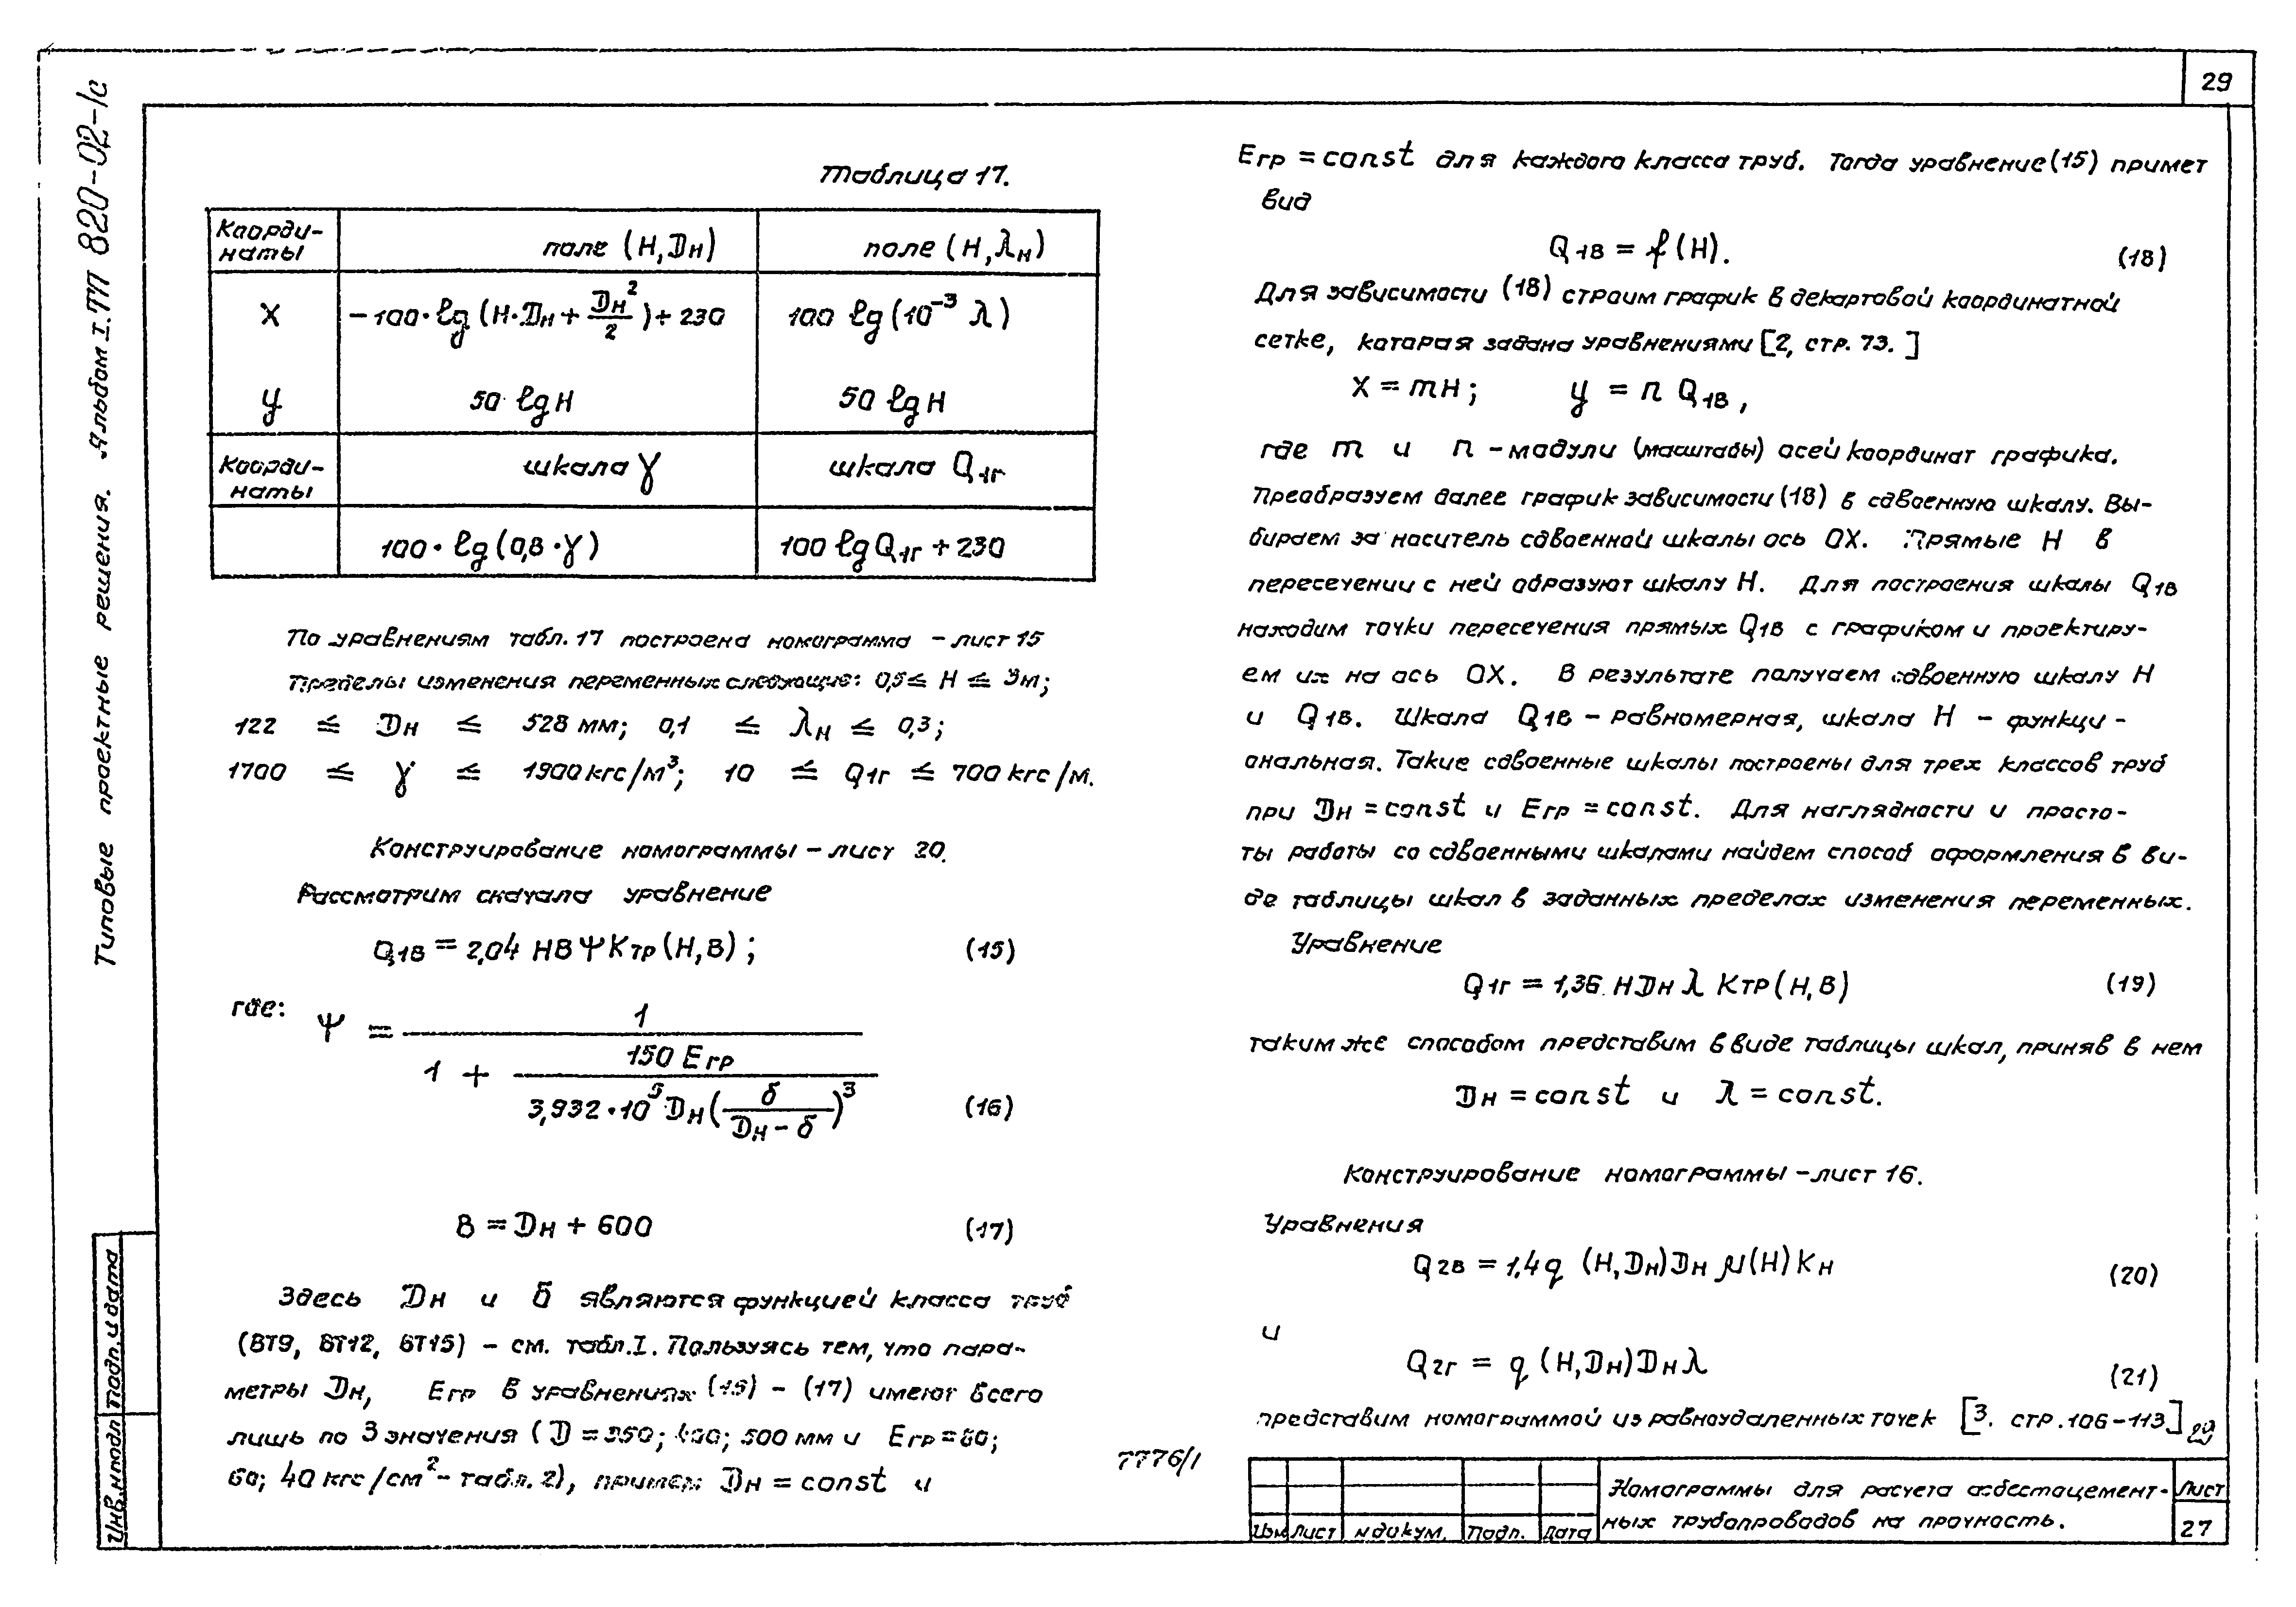 29
Типовые проектные решения. Альбом I. ТП 820-02-/с
Таблица 17.
Коорди-
наты
поле (H, Dн)
поле (H, λн)
X
−100·lg (H·Dн + Dн²/2) + 230
100 lg (10⁻³ λ)
y
50 lg H
50 lg H
Коорди-
наты
шкала γ
шкала Q1г
100·lg (0,8·γ)
100 lg Q1г + 230
По уравнениям табл. 17 построена номограмма – лист 15
Пределы изменения переменных следующие: 0,5 ≤ H ≤ 3м;
122 ≤ Dн ≤ 528 мм; 0,1 ≤ λн ≤ 0,3;
1700 ≤ γ ≤ 1900 кгс/м³; 10 ≤ Q1г ≤ 700 кгс/м.
Конструирование номограммы – лист 20.
Рассмотрим сначала уравнение
Q1в = 2,04 HВ Ψ Kтр (H, В); (15)
где:
Ψ = 1
1 + 150 Eгр
3,932·10⁵ Dн (δ / Dн − δ)³ (16)
B = Dн + 600 (17)
Здесь Dн и δ являются функцией класса труб
(ВТ9, ВТ12, ВТ15) – см. табл. I. Пользуясь тем, что пара-
метры Dн, Eгр в уравнениях (15) – (17) имеют всего
лишь по 3 значения (D = 350; 400; 500 мм и Eгр = 80;
60; 40 кгс/см² – табл. 2), примем Dн = const и
Eгр = const для каждого класса труб. Тогда уравнение (15) примет
вид
Q1в = f (H). (18)
Для зависимости (18) строим график в декартовой координатной
сетке, которая задана уравнениями [2, стр. 73.]
X = mH; y = n Q1в,
где m и n – модули (масштабы) осей координат графика.
Преобразуем далее график зависимости (18) в сдвоенную шкалу. Вы-
бираем за носитель сдвоенной шкалы ось OX. Прямые H в
пересечении с ней образуют шкалу H. Для построения шкалы Q1в
находим точки пересечения прямых Q1в с графиком и проектиру-
ем их на ось OX. В результате получаем сдвоенную шкалу H
и Q1в. Шкала Q1в – равномерная, шкала H – функци-
ональная. Такие сдвоенные шкалы построены для трех классов труб
при Dн = const и Eгр = const. Для наглядности и просто-
ты работы со сдвоенными шкалами найдем способ оформления в ви-
де таблицы шкал в заданных пределах изменения переменных.
Уравнение
Q1г = 1,36 HDн λ Kтр (H, В) (19)
таким же способом представим в виде таблицы шкал, приняв в нем
Dн = const и λ = const.
Конструирование номограммы – лист 16.
Уравнения
Q2в = 1,4q (H, Dн) Dн μ(H) Kн (20)
и
Q2г = q (H, Dн) Dн λ (21)
представим номограммой из равноудаленных точек [3. стр. 106–113]
29
7776/1
Инв. №подл
Подп. и дата
Изм
Лист
№ докум.
Подп.
Дата
Номограммы для расчета асбестоцемент-
ных трубопроводов на прочность.
Лист
27